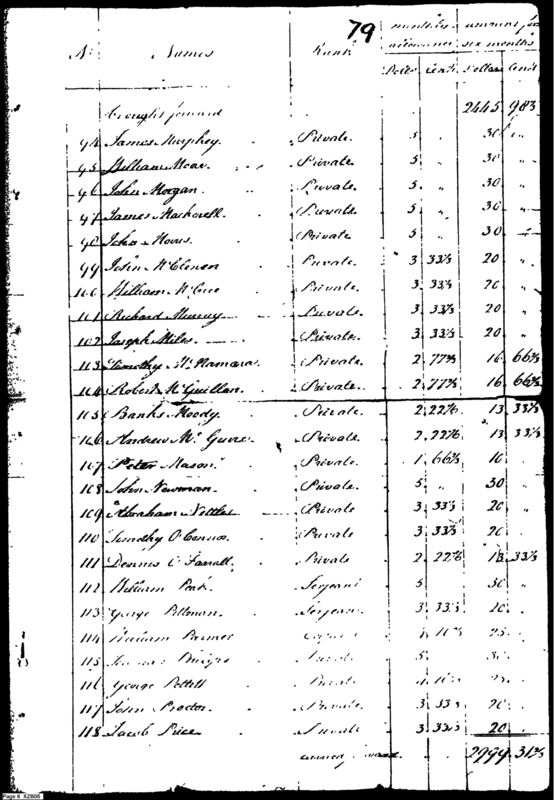 79
No. Names Rank monthly allowance amount for six months
Dolls Cents Dollars Cents
brought forward 2445 98⅓
94 James Murphey. Private 5 " 30 "
95 William Private 5 " 30 "
96 John Morgan. Private 5 " 30 "
97 James Private 5 " 30 "
98 John Private 5 " 30
99 John McClenen Private 3 33⅓ 20 "
100 William Private 3 33⅓ 20 "
101 Richard Murray Private 3 33⅓ 20 "
102 Joseph Miles Private 3 33⅓ 20 "
103 Timothy McNamara Private 2 77⅔ 16 66⅔
104 Robert McGuillan Private 2 77⅔ 16 66⅔
105 Banks Moody Private 2 22 13 33⅓
106 Andrew Private 2 22 13 33⅓
107 Peter Mason Private 1 66⅔ 10
108 John Newman. Private 5 " 30
109 Abraham Nettles Private 3 33⅓ 20
110 Timothy O'Connor Private 3 33⅓ 20
111 Dennis O'Farrall Private 2 22 13 33⅓
112 William Serjeant 5 30
113 George Pittman Serjeant 3 33⅓ 20
114 William 25
115 5 30
116 George
117 John Proctor Private 3 33⅓ 20
118 Jacob Price Private 3 33⅓ 20
carried 2994 31⅔
Page 6 XZB05